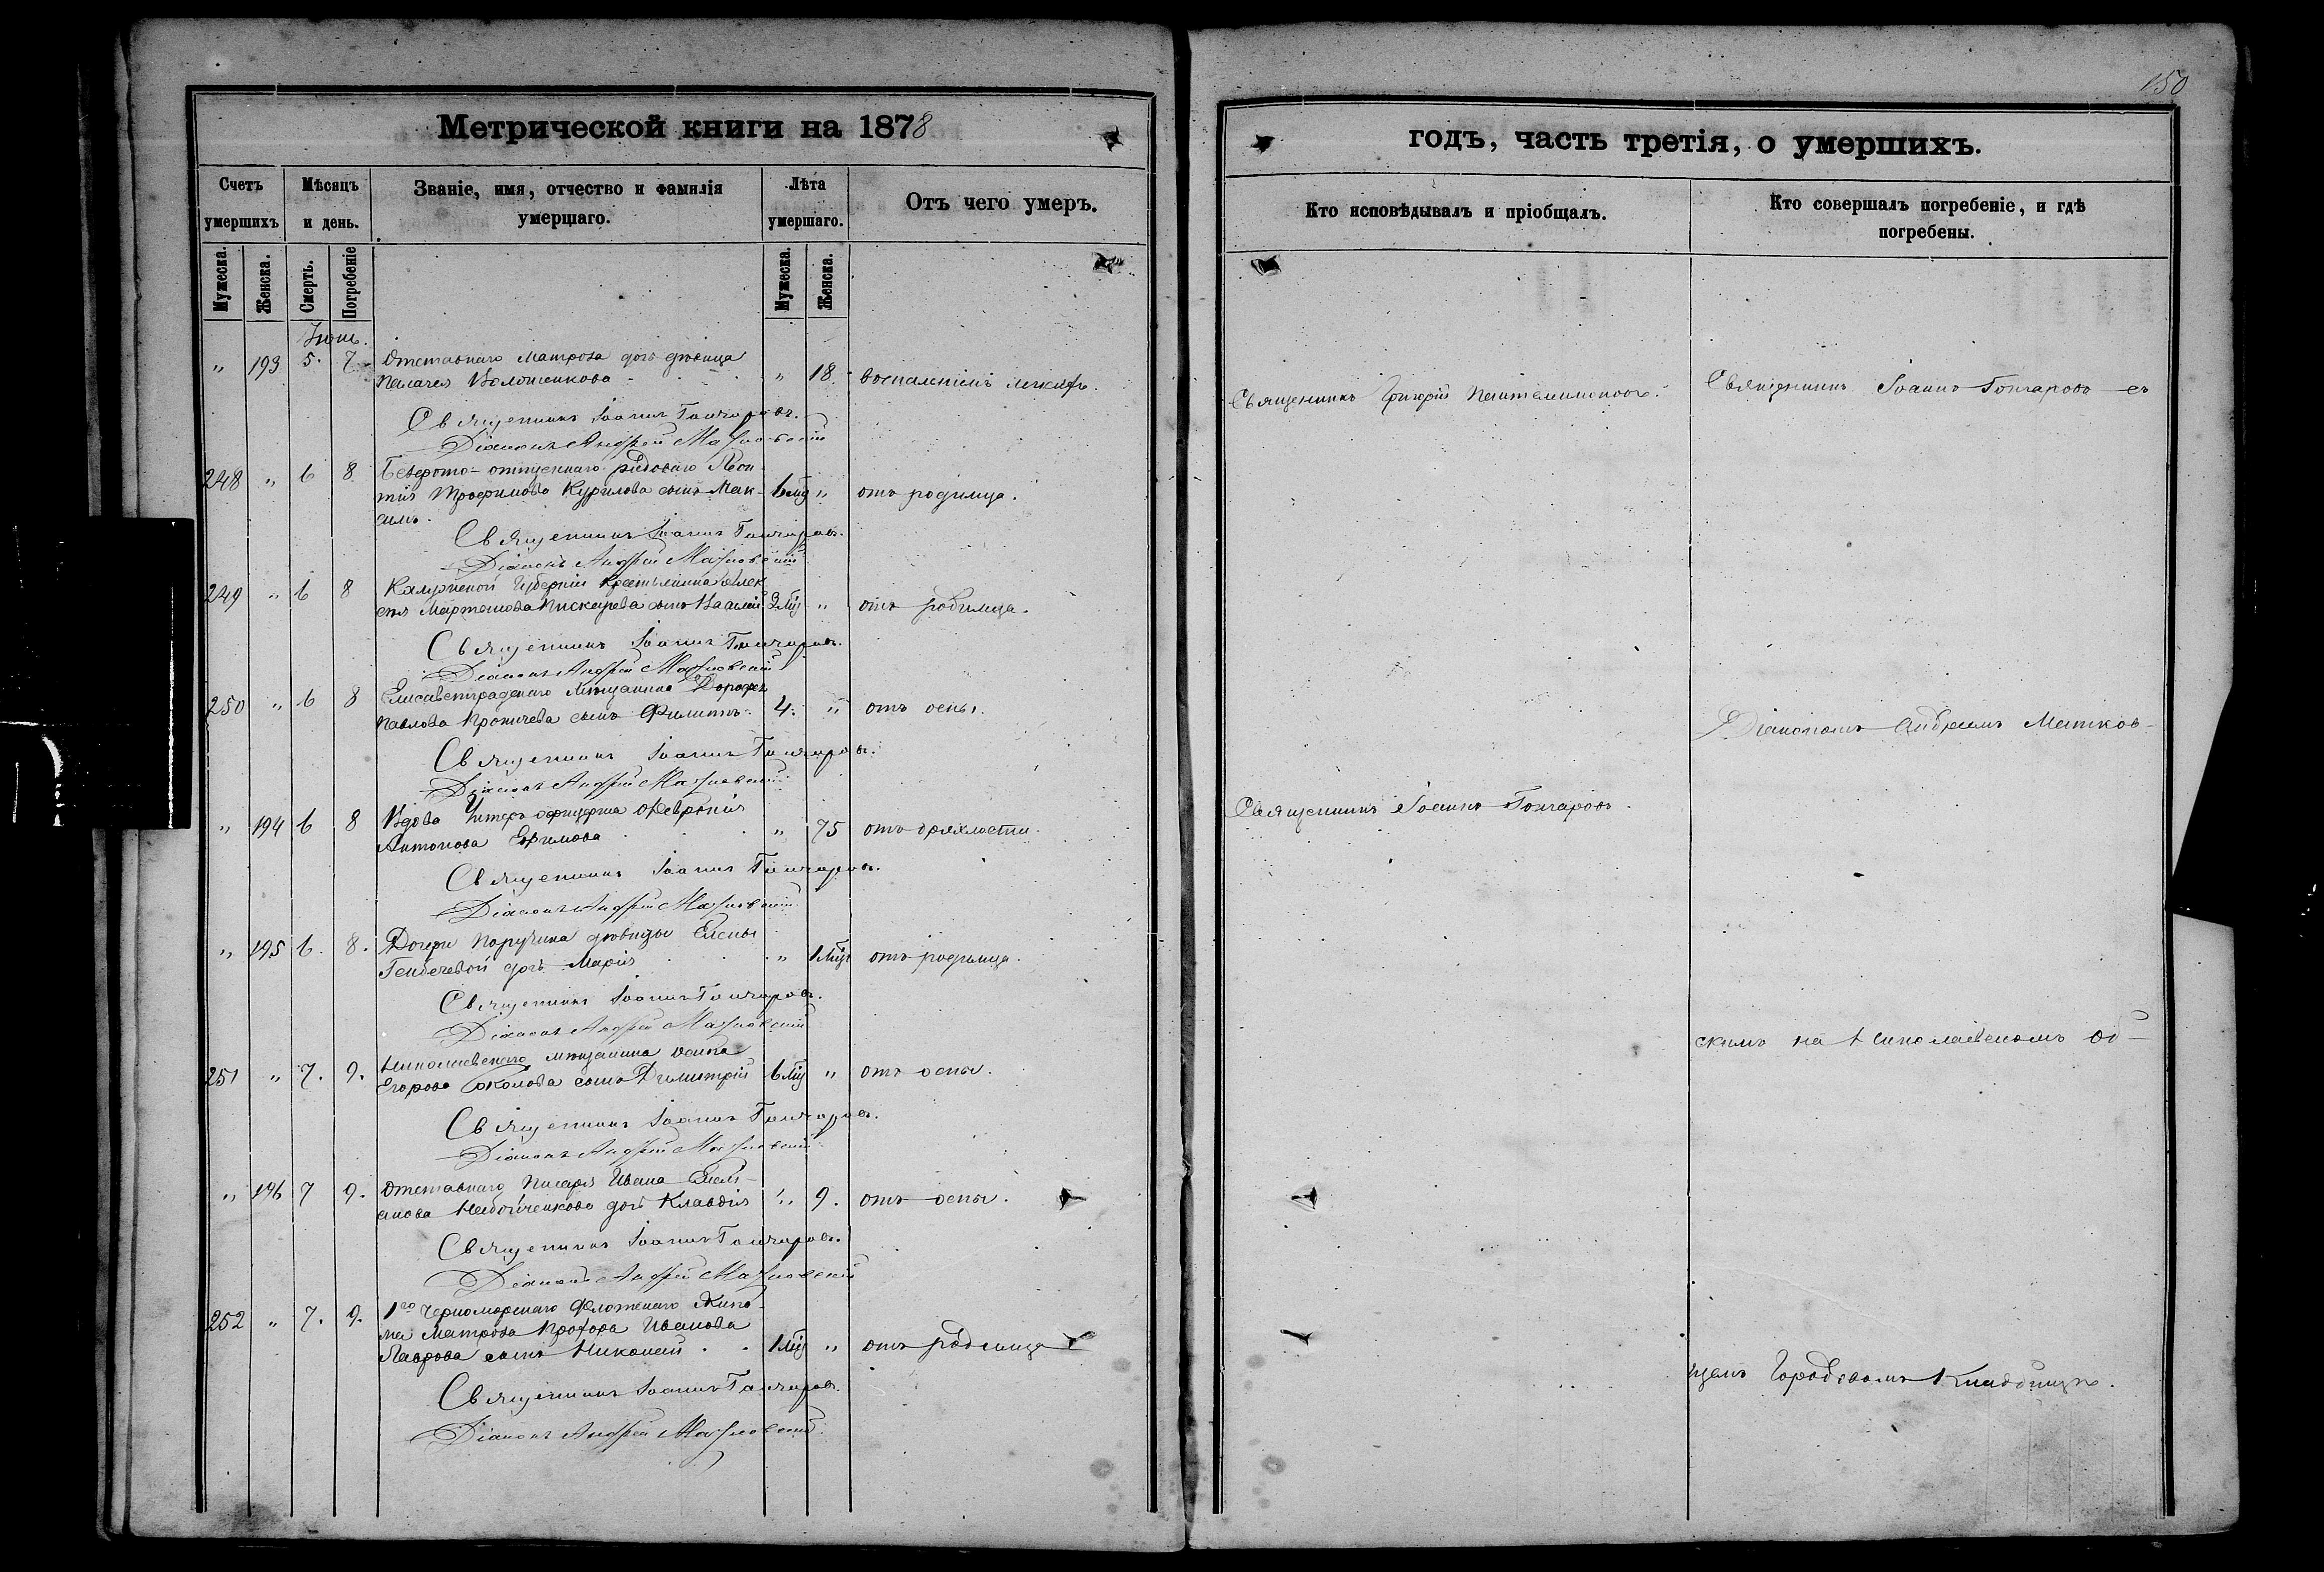 Метрической книги на 1878
годъ, часть третія, о умершихъ.
150
Счетъ умершихъ
Мѣсяцъ и день.
Званіе, имя, отчество и фамилія умершаго.
Лѣта умершаго.
Отъ чего умеръ.
Кто исповѣдывалъ и пріобщалъ.
Кто совершалъ погребеніе, и гдѣ погребены.
Мужеска.
Женска.
Смерть.
Погребеніе
Мужеска.
Женска.
" 193 5. 7. Отставнаго матроза дочь дѣвица
Пелагея Волошенкова " 18. воспаленіемъ легкихъ.
Священникъ Григорій Пантелимоновъ.
Священникъ Іоаннъ Гончаровъ съ
Священникъ Іоаннъ Гончаровъ.
Діаконъ Андрей
248 " 6 8 отпущеннаго рядоваго Леон
тія Трофимова Курилова сынъ Мак- 6 мц " отъ родимца.
симъ.
Священникъ Іоаннъ Гончаровъ.
Діаконъ Андрей
249 " 6 8 Калужской Губерніи крестьянина Алек
сѣя Мартынова Пискарева сынъ Василій 3 мц " отъ родимца.
Священникъ Іоаннъ Гончаровъ.
Діаконъ Андрей
250 " 6 8 Елисаветградскаго мѣщанина Дорофея
Павлова сынъ Филиппъ. 4. " отъ оспы.
Діакономъ Андреемъ Матков-
Священникъ Іоаннъ Гончаровъ.
Діаконъ Андрей
" 194 6 8 Вдова Унтеръ офицерша Февронія
Антонова Ефимова " 75 отъ дряхлости.
Священникъ Іоаннъ Гончаровъ.
Священникъ Іоаннъ Гончаровъ.
Діаконъ Андрей
" 195 6. 8. Дочери поручика дѣвицы Елены
дочь Марія " 1 мц отъ родимца.
Священникъ Іоаннъ Гончаровъ.
Діаконъ Андрей
скимъ на Николаевскомъ об-
251 " 7. 9. Николаевскаго мѣщанина
Егорова сынъ Димитрій 6 мц " отъ оспы.
Священникъ Іоаннъ Гончаровъ.
Діаконъ Андрей
" 196 7 9. Отставнаго писаря Ивана Емель-
янова дочь Клавдія " 9. отъ оспы.
Священникъ Іоаннъ Гончаровъ.
Діаконъ Андрей
252 " 7. 9. 1го Черноморскаго Флотскаго Экипа-
жа матроза Прохора Иванова
Лаврова сынъ Николай 1 мц " отъ родимца
щемъ Городскомъ Кладбищѣ.
Священникъ Іоаннъ Гончаровъ.
Діаконъ Андрей